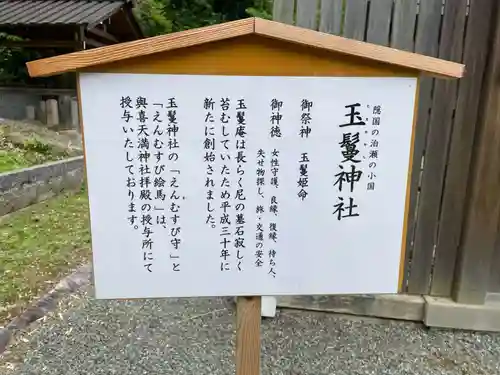 隠国の泊瀬の小国
玉鬘神社
たまかずらじんじゃ
御祭神　玉鬘姫命
御神徳　女性守護、良縁、復縁、待ち人
失せ物探し、旅・交通の安全
玉鬘庵は長らく尼の墓石寂しく
苔むしていたため平成三十年に
新たに創始されました。
玉鬘神社の「えんむすび守」と
「えんむすび絵馬」は、
與喜天満神社拝殿の授与所にて
授与いたしております。